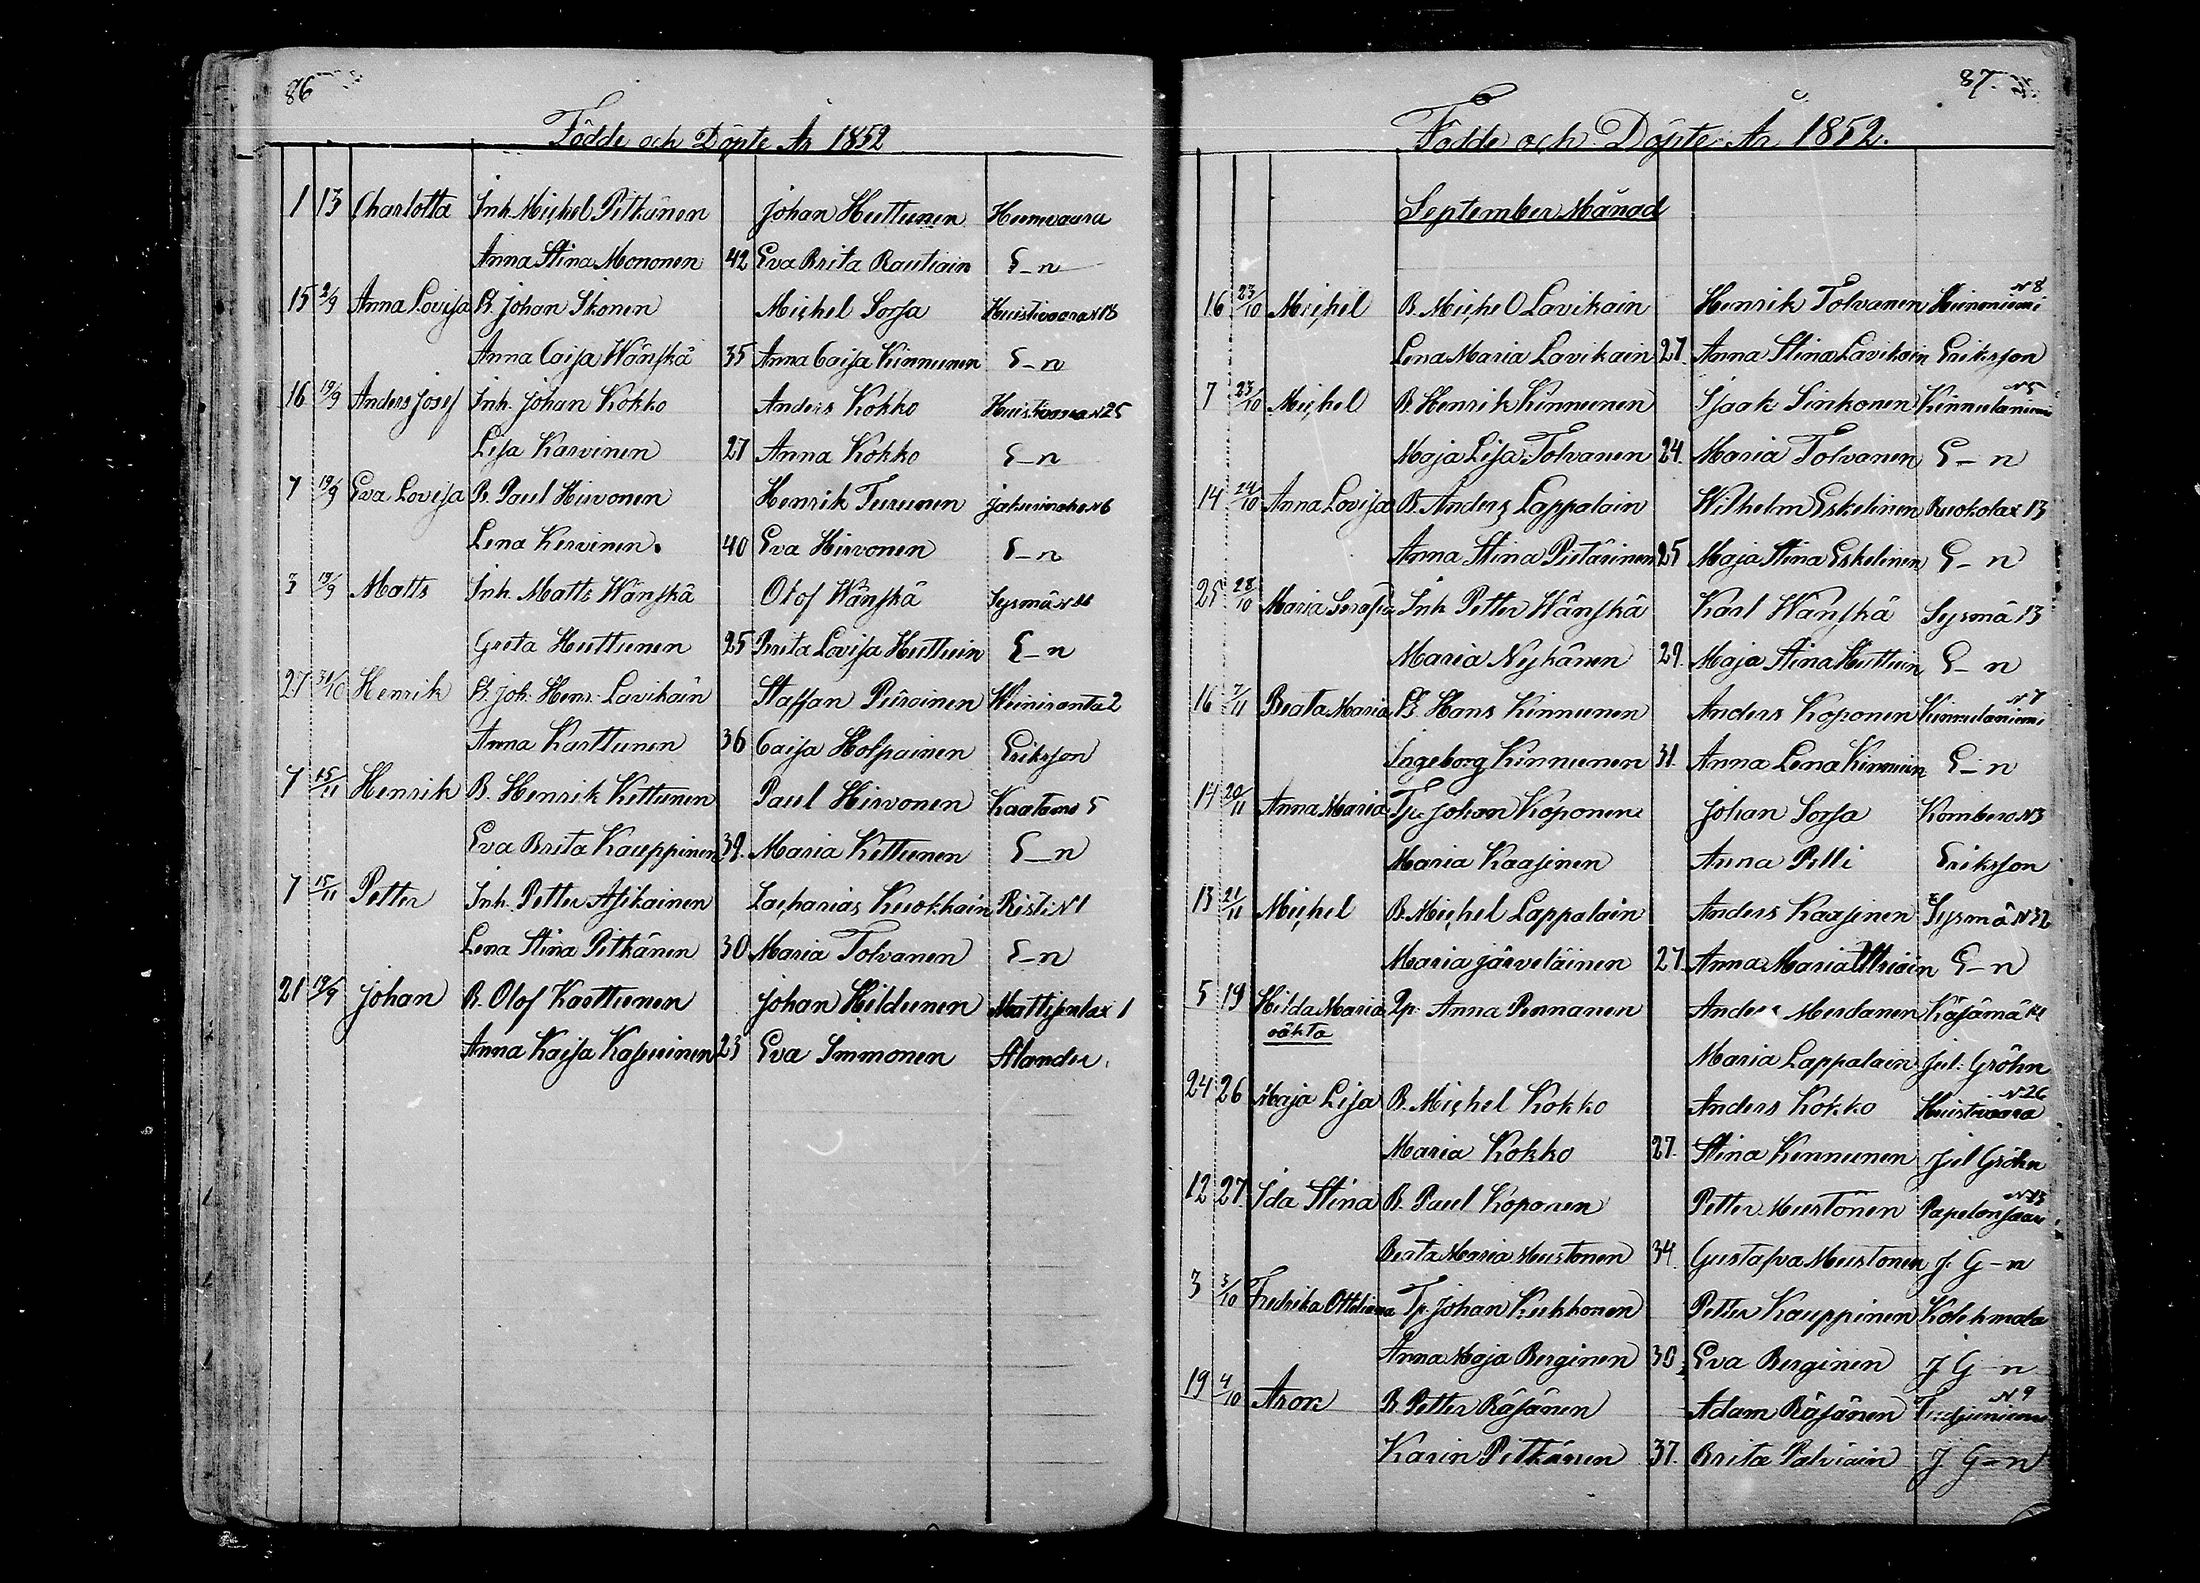 86
Födde och Döpte År 1852
1 13 Charlotta Inh. Michel Pitkänen Johan Huttunen Huinwaara
Anna Stina Mononen 42 Eva Brita Rautiain E-n
15 2/9 Anna Lovisa B. Johan Ikonen Michel Sorsa Huistwaara N18
Anna Caisa Wänskä 35 Anna Caisa Kinnunen E-n
16 19/9 Anders Josef Inh. Johan Kokko Anders Kokko N25
Lisa Karvinen 27 Anna Kokko E-n
7 19/9 Eva Lovisa B. Paul Hirvonen Henrik Turunen
Lena Kervinen. 40 Eva Hirvonen E-n
3 19/9 Matts Inh. Matts Wänskä Olof Wänskä Sysmä
Greta Huttunen 25 Brita Lovisa Huttuin E-n
27 31/10 Henrik B. Joh. Henr. Lavikain Staffan Piiroinen Hiiniranta 2
Anna Karttunen 36 Caisa Holpainen Eriksson
7 15/11 Henrik B. Henrik Kettunen Paul Hirvonen Kaatamo 5
Eva Brita Kauppinen 39. Maria Kettunen E-n
7 15/11 Petter Inh. Petter Asikainen Zacharias Kuokkain Risti N1
Lena Stina Pitkänen 30 Maria Tolvanen E-n
21 19/9 Johan B. Olof Karttunen Johan Hildunen Mattisenlax 1
Anna Kaisa Kasurinen 23 Eva Immonen Alander.
87.
Födde och Döpte År 1852.
September Månad
16 23/10 Michel B. Michel Lavikain Henrik Tolvanen Huinoniemi N8
Lena Maria Lavikain 27. Anna Stina Lavikain Eriksson
7 23/10 Michel B. Henrik Kinnunen Isaak Sinkonen Kinnulaniemi N5
Maja Lisa Tolvanen 24. Maria Tolvanen E-n
14 24/10 Anna Lovisa B. Anders Lappalain Wilhelm Eskelinen Ruokolax 13
Anna Stina Pietarinen 25 Maja Stina Eskelinen E-n
25 28/10 Maria Serafia Inh Petter Wänskä Karl Wänskä Sysmä 13
Maria Nykänen 29. Maja Stina Huttuin E-n
16 7/11 Beata Maria B. Hans Kinnunen Anders Koponen Kinnulaniemi N7
Ingeborg Kinnunen 31. Anna Lena Kinnuin E-n
14 20/11 Anna Maria Tp. Johan Koponen Johan Sorsa Kombero N3
Maria Kaasinen Anna Pelli Eriksson
13 21/11 Michel B. Michel Lappalain Anders Kaasinen Sysmä N32
Maria Järveläinen 27. Anna Maria E-n
5 19 Hilda Maria Qp. Anna Pennanen Anders Käsämä 14
oäkta
Maria Lappalain Jul: Gröhn
24 26 Maja Lisa B. Michel Kokko Anders Kokko Huistwaara N26
Maria Kokko 27. Stina Kinnunen Jul Gröhn
12 27. Ida Stina B. Paul Koponen Petter Mustonen Papelonsaari N13
Beata Maria Mustonen 34. Gustafva Mustonen J. G-n
3 3/10 Fredrika Ottiliana Tp. Johan Kukkonen Petter Kauppinen Kolehmala
Anna Maja Berginen 30 Eva Berginen J G-n
19 4/10 Aron B Petter Räsänen Adam Räsänen N9
Karin Pitkänen 37. Brita Palviain J. G-n